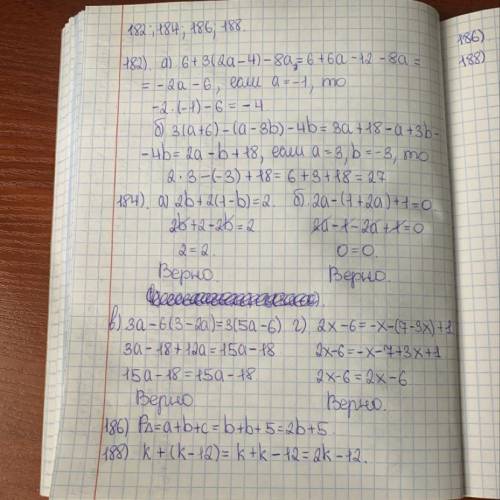 182; 184; 186; 188.
182). а) 6+3(2a-4)-8a=6+6a-12-8a=
=-2a-6, если a=-1, то
-2·(-1)-6=-4
б) 3(a+6)-(a-3b)-4b=3a+18-a+3b-
-4b=2a-b+18, если a=3, b=-3, то
2·3-(-3)+18=6+3+18=27
184). а) 2b+2(1-b)=2. б) 2a-(1+2a)+1=0
2b+2-2b=2 2a-1-2a+1=0
2=2. 0=0.
Верно Верно.
в) 3a-6(3-2a)=3(5a-6) г) 2x-6=-x-(7-3x)+1
3a-18+12a=15a-18 2x-6=-x-7+3x+1
15a-18=15a-18 2x-6=2x-6
Верно Верно.
186) P∆=a+b+c=b+b+5=2b+5.
188) k+(k-12)=k+k-12=2k-12.
186)
188)